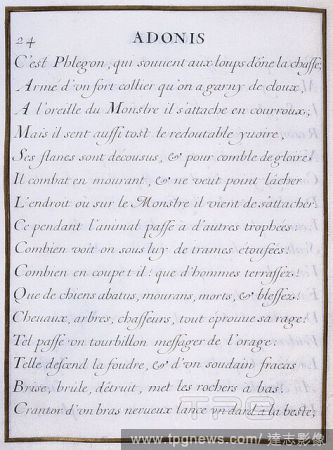 24
ADONIS
C'est Phlegon, qui souuent aux loups dõne la chasse,
Armé d'vn fort collier qu'on a garny de cloux,
A l'oreille du Monstre il s'attache en courroux;
Mais il sent aussi tost le redoutable yuoire,
Ses flancs sont décousus, & pour comble de gloire
Il combat en mourant, & ne veut point lâcher
L'endroit où sur le Monstre il vient de s'attacher.
Ce pendant l'animal passe à d'autres trophées:
Combien voit on sous luy de trames étoufées!
Combien en coupe t-il! que d'hommes terrassez!
Que de chiens abatus, mourans, morts, & blessez!
Cheuaux, arbres, chasseurs, tout éprouue sa rage:
Tel passe vn tourbillon messager de l'orage:
Telle descend la foudre, & d'vn soudain fracas
Brise, brûle, détruit, met les rochers à bas.
Crantor d'vn bras nerueux lance vn dard à la beste,
TPG
www.tpgnews.com / 達志影像